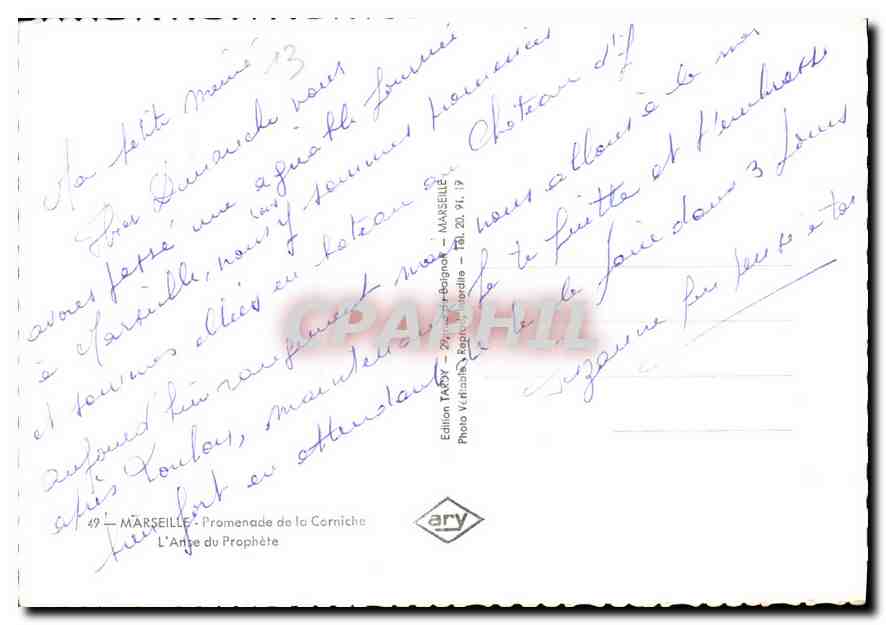 Ma petite mémé 13
Hier Dimanche nous
avons passé une agréable journée
à Marseille, nous y sommes promenés
et sommes allées en bateau au Château d'If
aujourd'hui rangement mais nous allons à la mer
après Toulon, maintenant je te quitte et t'embrasse
bien fort en attendant de le faire dans 3 jours
Suzanne qui pense à toi
Edition TARDY - 29, de Baignoir - MARSEILLE
Photo Véritable - Reprod. interdite - Tél. 20. 91. 19
CPAPHIL
49 - MARSEILLE - Promenade de la Corniche
L'Anse du Prophète
ary